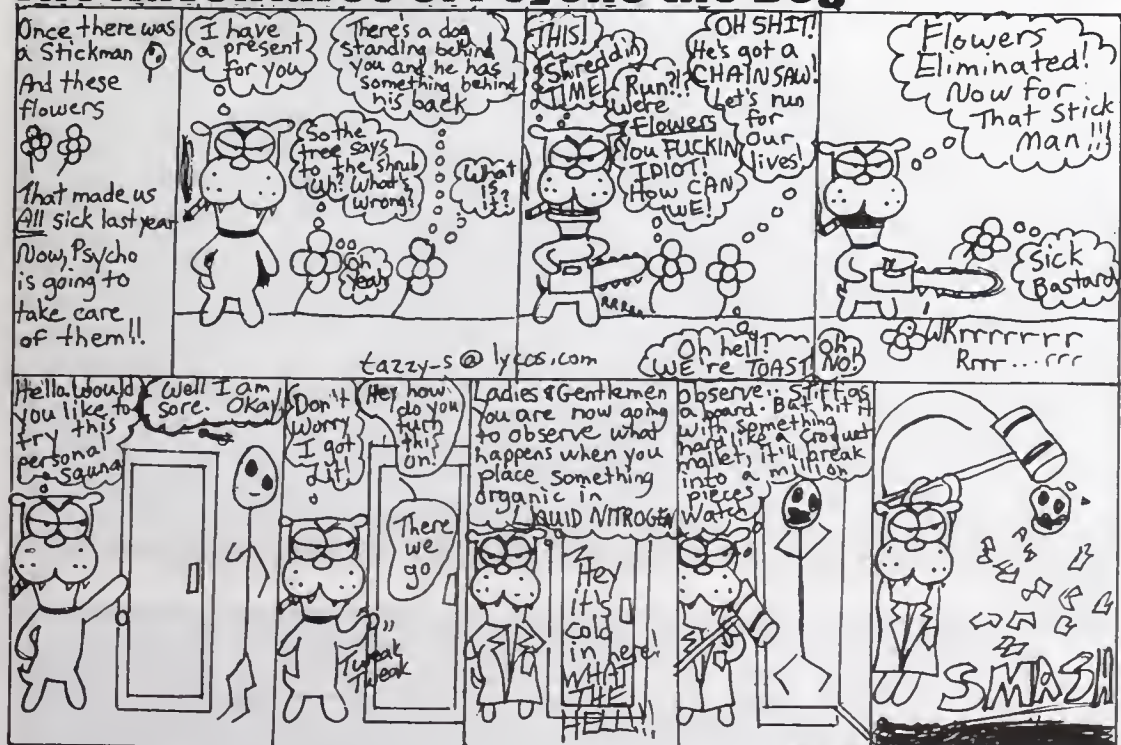 Once there was
a Stickman
And these
flowers
That made us
All sick last year
Now, Psycho
is going to
take care
of them!!
I have
a present
for you
There's a dog
standing behind
you and he has
something behind
his back
So the
tree says
to the shrub
Uh! What's
wrong?
Oh
Yeah
What
is
it?
tazzy-s@lycos.com
THIS!
Shreddin
TIME
OH SHIT!
He's got a
CHAINSAW!
Let's run
for
our
lives!
Run?!?
were
Flowers
You FUCKIN
IDIOT!
How CAN
WE!
RRRRR
Oh hell!
WE're TOAST
Flowers
Eliminated!
Now for
That Stick
Man!!!
Sick
Bastard
Oh
NO!
WKrrrrrrr
Rrr...rrr
Hello. Would
you like to
try this
personal
sauna
Well I am
sore. Okay
Don't
Worry
I got
it!
Hey how
do you
turn
this
on!
There
we
go
Tweak
Tweak
Ladies & Gentlemen
you are now going
to observe what
happens when you
place something
organic in
LIQUID NITROGEN
Hey
it's
cold
in here!
WHAT
THE
HELL!!
Observe. Stiff as
a board. But, hit it
with something
hard like a croquet
mallet, it'll break
into a
million
pieces
Watch
SMASH